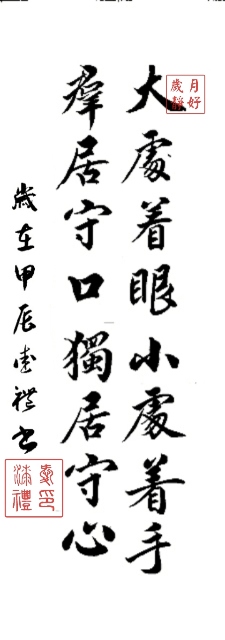 大處着眼小處着手
羣居守口獨居守心
歲在甲辰書禮書
月好
歲靜